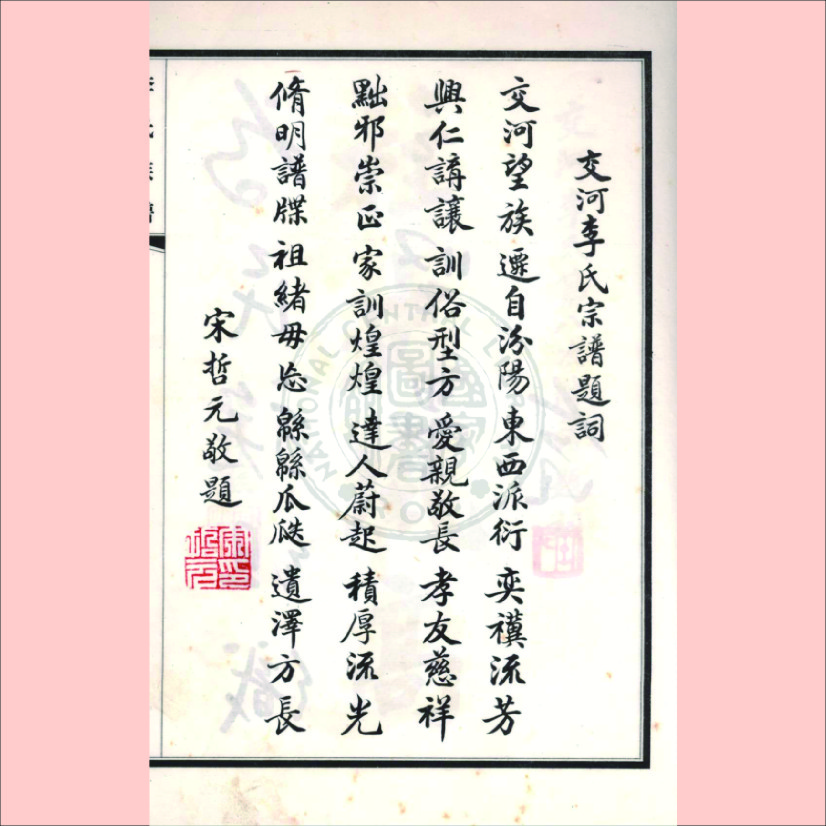 交河李氏宗譜題詞
交河望族 遷自汾陽 東西派衍 奕禩流芳
興仁講讓 訓俗型方 愛親敬長 孝友慈祥
黜邪崇正 家訓煌煌 達人蔚起 積厚流光
脩明譜牒 祖緒毋忘 緜緜瓜瓞 遺澤方長
宋哲元敬題
NATIONAL CENTRAL